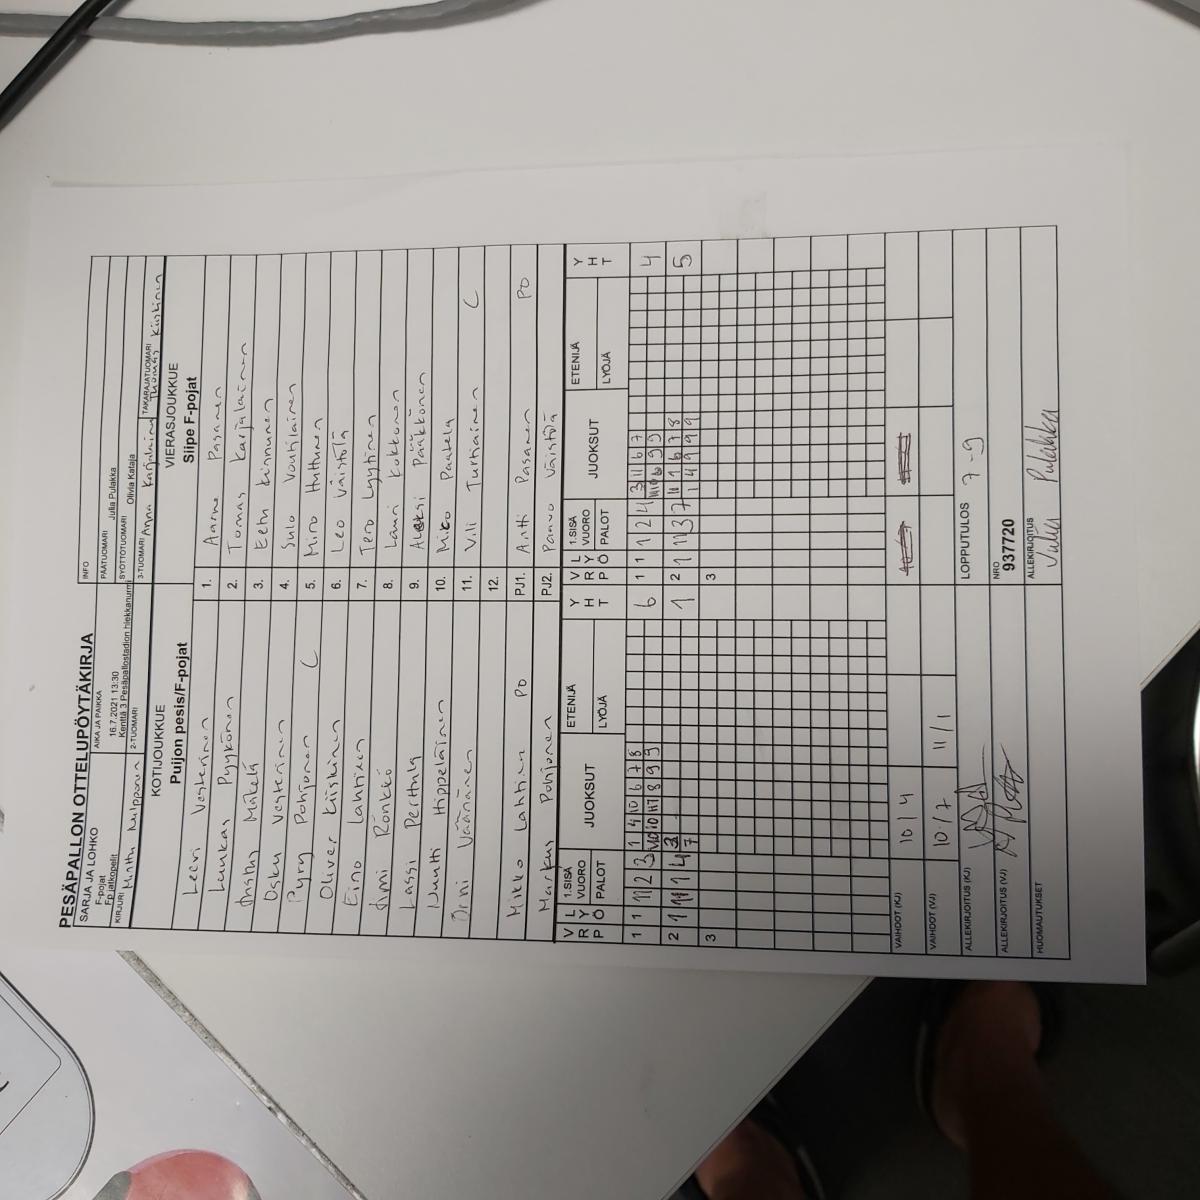 PESÄPALLON OTTELUPÖYTÄKIRJA
SARJA JA LOHKO
F-pojat
Fp jatkopelit
AIKA JA PAIKKA
16.7.2021 13:30
Kenttä 3 Pesäpallostadion hiekkanurmi
INFO
PÄÄTUOMARI Julia Pulakka
SYÖTTÖTUOMARI Olivia Kataja
KIRJURI Minttu
2-TUOMARI
3-TUOMARI Anna Karjalainen
TAKARAJATUOMARI Thomas Kiiskinen
KOTIJOUKKUE
Puijon pesis/F-pojat
VIERASJOUKKUE
Siipe F-pojat
Leevi Vesterinen 1. Aarne Pasanen
Luukas Pyykönen 2. Tomas Karjalainen
Mäkelä 3. Eetu Kinnunen
Osku Vesterinen 4. Sulo Voutilainen
Pyry Pohjonen C 5. Miro Huttunen
Oliver Kiiskinen 6. Leo Väistölä
Eino Lahtinen 7. Tero Lyytinen
Rönkkö 8. Lauri Kokkonen
Lassi Perttula 9. Aleksi Pääkkönen
Nuutti Hippeläinen 10. Mico Paatela
Onni Väänänen 11. Vili Turtiainen C
12.
Mikko Lahtinen PO PJ1. Antti Pasanen PO
Markus Pohjonen PJ2. Paavo Väistölä
V R P
L Y Ö
1.SISÄ VUORO PALOT
JUOKSUT
ETENIJÄ
LYÖJÄ
Y H T
V R P
L Y Ö
1.SISÄ VUORO PALOT
JUOKSUT
ETENIJÄ
LYÖJÄ
Y H T
1 1 11 2 3 1 4 10 6 7 8 6
10 11 8 9 9
1 1 1 2 4 3 11 6 7 4
10 9 9
2 1 1 4 3 1
7
2 1 11 3 7 11 1 6 7 8 5
1 4 9 9 9
3
3
VAIHDOT (KJ) 10/4
VAIHDOT (VJ) 10/7 11/1
ALLEKIRJOITUS (KJ)
LOPPUTULOS 7-9
ALLEKIRJOITUS (VJ)
NRO
937720
HUOMAUTUKSET
ALLEKIRJOITUS
Julia Pulakka